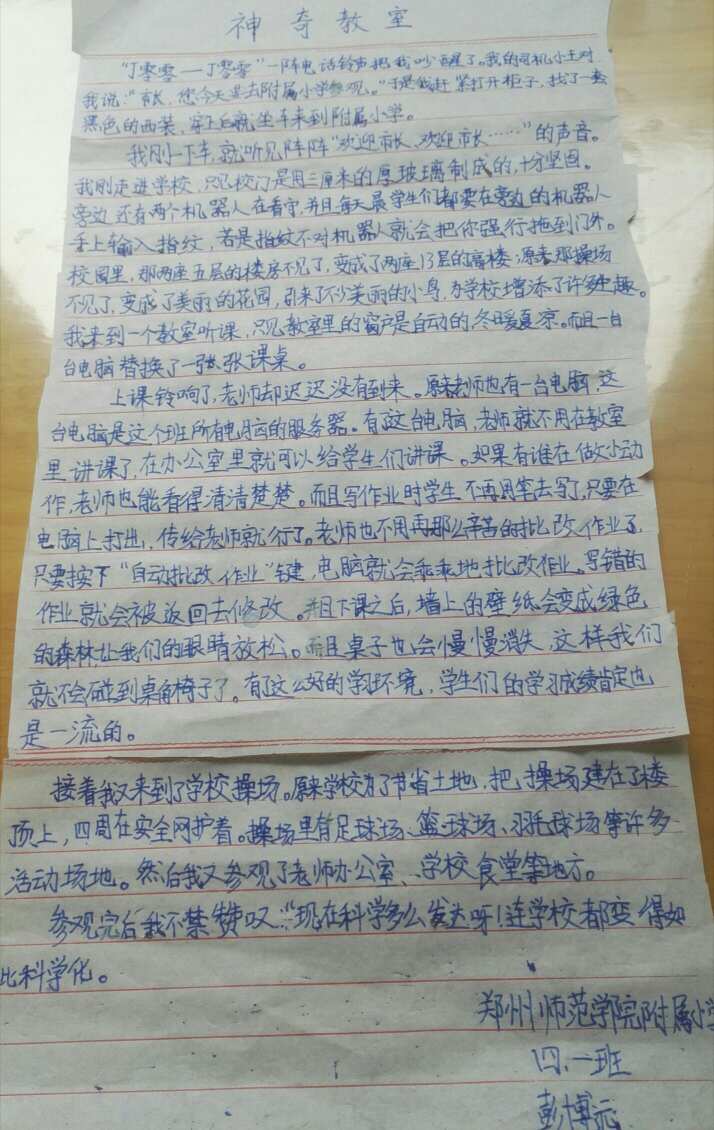 神奇教室
“丁零零—丁零零”一阵电话铃声把我吵醒了。我的司机小王对
我说：“市长，您今天要去附属小学参观。”于是我赶紧打开柜子，找了一套
黑色的西装，穿上后就坐车来到附属小学。
我刚一下车，就听见阵阵“欢迎市长，欢迎市长……”的声音。
我刚走进学校，只见校门是用三厘米的厚玻璃制成的，十分坚固。
旁边还有两个机器人在看守，并且每天晨学生们都要在旁边的机器人
手上输入指纹，若是指纹不对机器人就会把你强行拖到门外。
校园里，那两座五层的楼房不见了，变成了两座13层的高楼；原来那操场
不见了，变成了美丽的花园，引来了不少美丽的小鸟，为学校增添了许多生趣。
我来到一个教室听课，只见教室里的窗户是自动的，冬暖夏凉。而且一台
台电脑替换了一张张课桌。
上课铃响了，老师却迟迟没有到来。原来老师也有一台电脑，这
台电脑是这个班所有电脑的服务器。有了这台电脑，老师就不用在教室
里讲课了，在办公室里就可以给学生们讲课。如果有谁在做小动
作，老师也能看得清清楚楚。而且写作业时学生不再用笔去写了，只要在
电脑上打出，传给老师就行了。老师也不用再那么辛苦的批改作业了，
只要按下“自动批改作业”键，电脑就会乖乖地批改作业。写错的
作业就会被返回去修改。并且下课之后，墙上的壁纸会变成绿色
的森林让我们的眼睛放松。而且桌子也会慢慢消失，这样我们
就不会碰到桌角椅子了。有了这么好的学习环境，学生们的学习成绩肯定也
是一流的。
接着我又来到了学校操场。原来学校为了节省土地，把操场建在了楼
顶上，四周在安全网护着。操场里有足球场、篮球场、羽毛球场等许多
活动场地。然后我又参观了老师办公室、学校食堂等地方。
参观完后我不禁赞叹：“现在科学多么发达呀！连学校都变得如
此科学化。
郑州师范学院附属小学
四.一班
彭博元